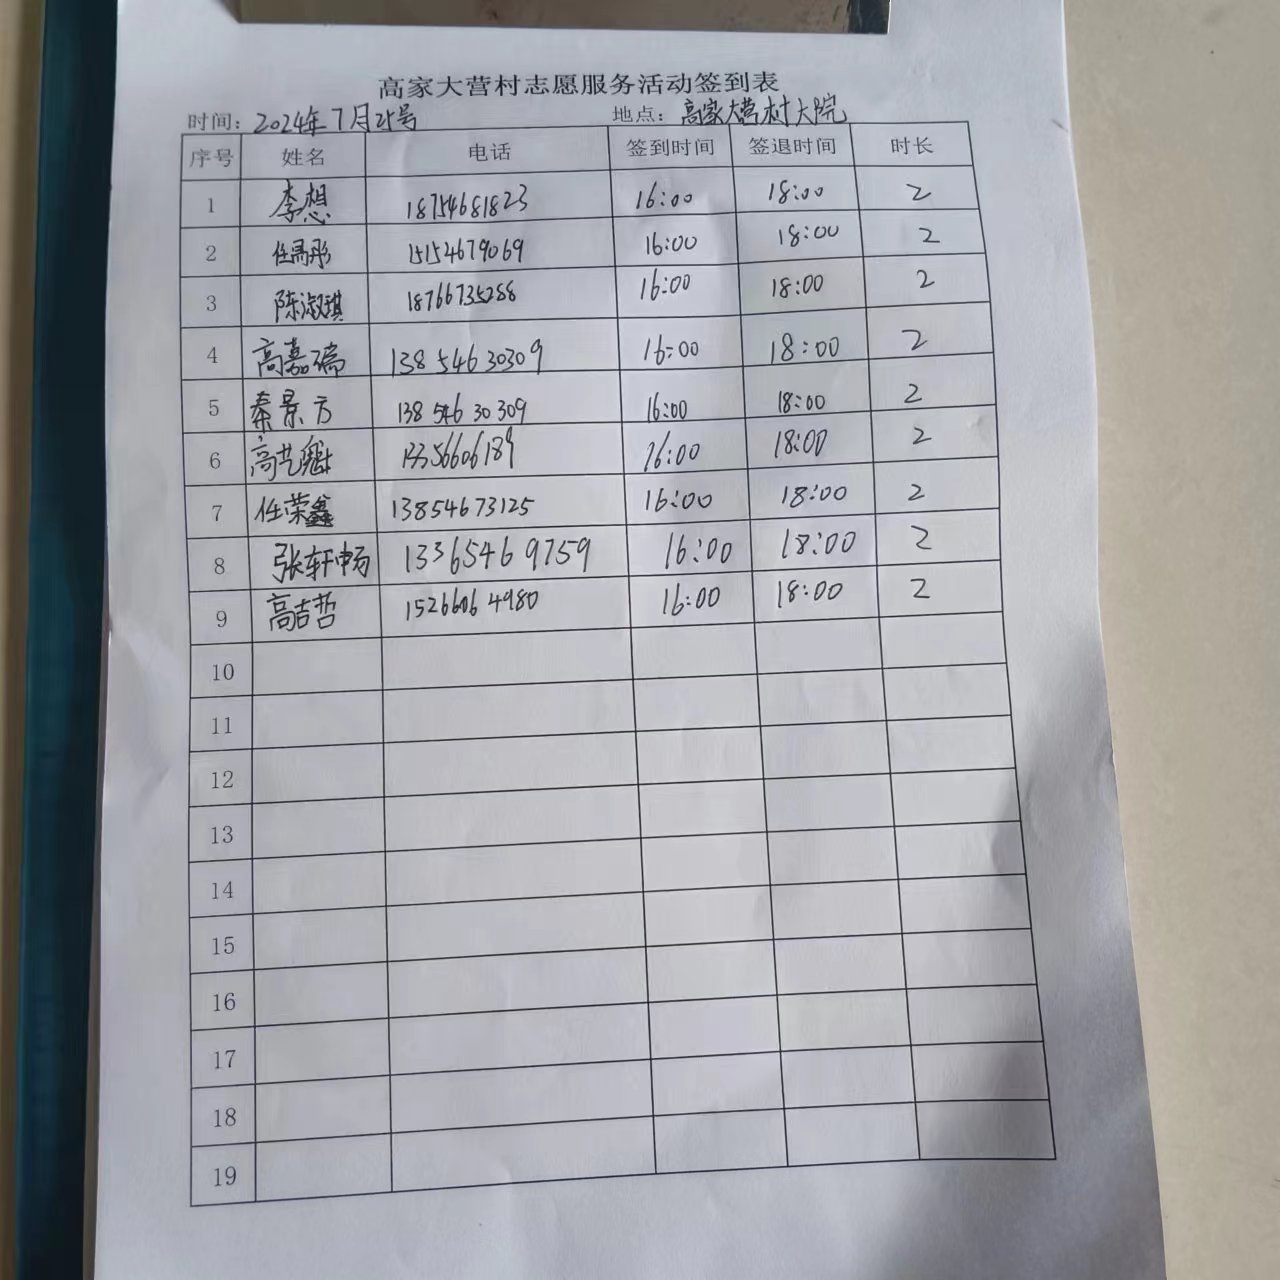 高家大营村志愿服务活动签到表
时间：2024年7月25号 地点：高家大营村大院
序号 姓名 电话 签到时间 签退时间 时长
1 李想 18754681823 16:00 18:00 2
2 15154679069 16:00 18:00 2
3 陈淑琪 18766735288 16:00 18:00 2
4 高嘉瑞 13854630309 16:00 18:00 2
5 秦景方 13854630309 16:00 18:00 2
6 高艺魁 13356606189 16:00 18:00 2
7 任荣鑫 13854673125 16:00 18:00 2
8 张轩畅 13365469759 16:00 18:00 2
9 高吉哲 15266064980 16:00 18:00 2
10
11
12
13
14
15
16
17
18
19